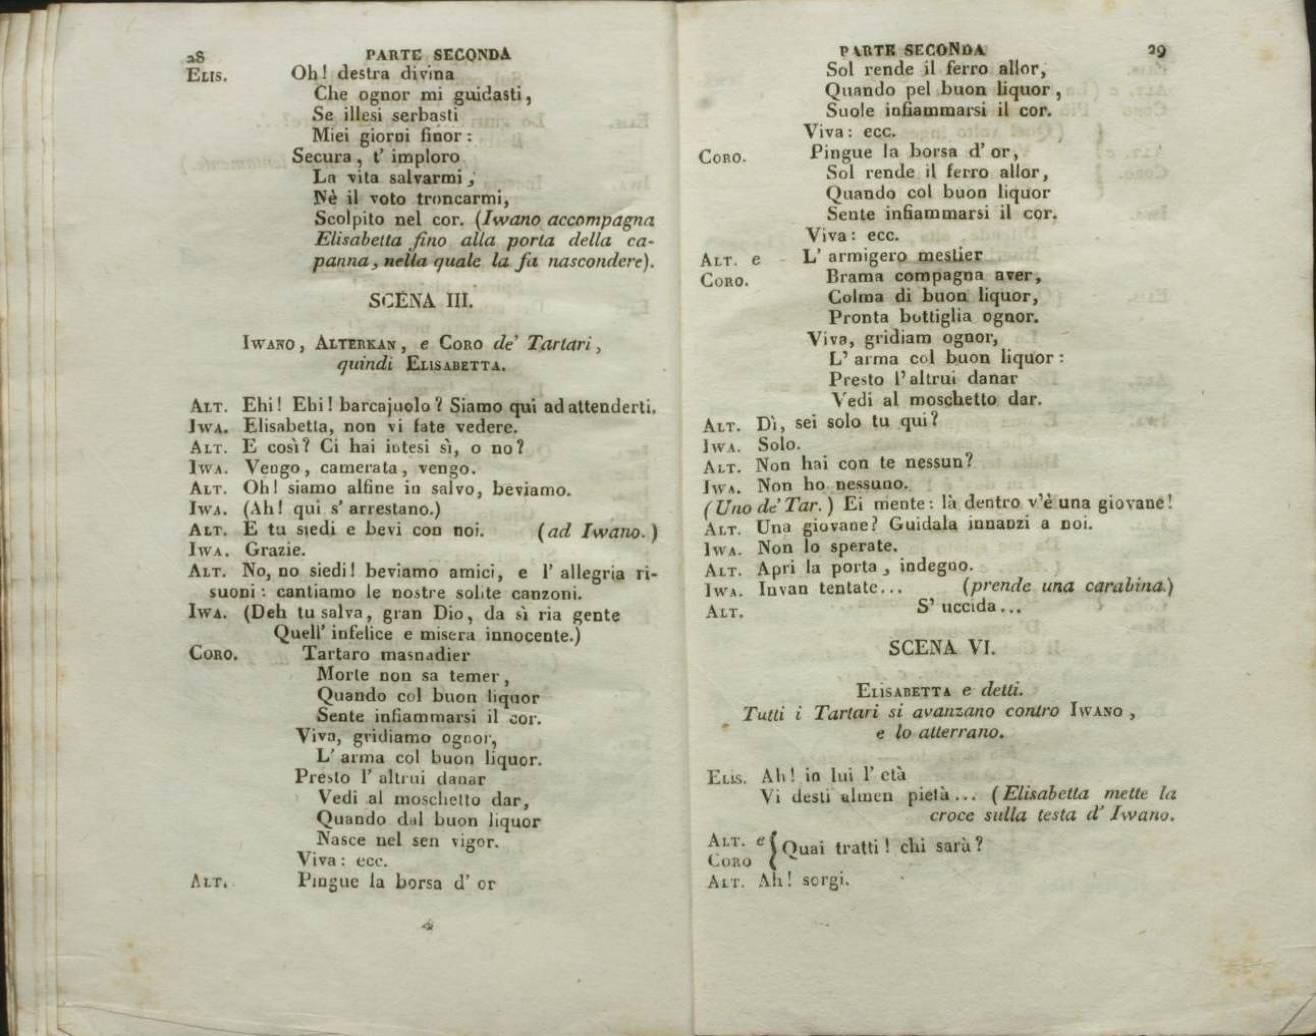 28 PARTE SECONDA
ELIS. Oh! destra divina
Che ognor mi guidasti,
Se illesi serbasti
Miei giorni finor:
Secura, t' imploro
La vita salvarmi,
Nè il voto troncarmi,
Scolpito nel cor. (Iwano accompagna
Elisabetta fino alla porta della ca-
panna, nella quale la fa nascondere).
SCENA III.
IWANO, ALTERKAN, e CORO de' Tartari,
quindi ELISABETTA.
ALT. Ehi! Ehi! barcajuolo? Siamo qui ad attenderti.
IWA. Elisabetta, non vi fate vedere.
ALT. E così? Ci hai intesi sì, o no?
IWA. Vengo, camerata, vengo.
ALT. Oh! siamo alfine in salvo, beviamo.
IWA. (Ah! qui s' arrestano.)
ALT. E tu siedi e bevi con noi. (ad Iwano.)
IWA. Grazie.
ALT. No, no siedi! beviamo amici, e l' allegria ri-
suoni: cantiamo le nostre solite canzoni.
IWA. (Deh tu salva, gran Dio, da sì ria gente
Quell' infelice e misera innocente.)
CORO. Tartaro masnadier
Morte non sa temer,
Quando col buon liquor
Sente infiammarsi il cor.
Viva, gridiamo ognor,
L' arma col buon liquor.
Presto l' altrui danar
Vedi al moschetto dar,
Quando dal buon liquor
Nasce nel sen vigor.
Viva: ecc.
ALT. Pingue la borsa d' or
PARTE SECONDA 29
Sol rende il ferro allor,
Quando pel buon liquor,
Suole infiammarsi il cor.
Viva: ecc.
CORO. Pingue la borsa d' or,
Sol rende il ferro allor,
Quando col buon liquor
Sente infiammarsi il cor.
Viva: ecc.
ALT. e L' armigero mestier
CORO. Brama compagna aver,
Colma di buon liquor,
Pronta bottiglia ognor.
Viva, gridiam ognor,
L' arma col buon liquor:
Presto l' altrui danar
Vedi al moschetto dar.
ALT. Dì, sei solo tu qui?
IWA. Solo.
ALT. Non hai con te nessun?
IWA. Non ho nessuno.
(Uno de' Tar.) Ei mente: là dentro v'è una giovane!
ALT. Una giovane? Guidala innanzi a noi.
IWA. Non lo sperate.
ALT. Apri la porta, indegno.
IWA. Invan tentate... (prende una carabina.)
ALT. S' uccida...
SCENA VI.
ELISABETTA e detti.
Tutti i Tartari si avanzano contro IWANO,
e lo atterrano.
ELIS. Ah! in lui l' età
Vi desti almen pietà... (Elisabetta mette la
croce sulla testa d' Iwano.
ALT. e
CORO { Quai tratti! chi sarà?
ALT. Ah! sorgi.